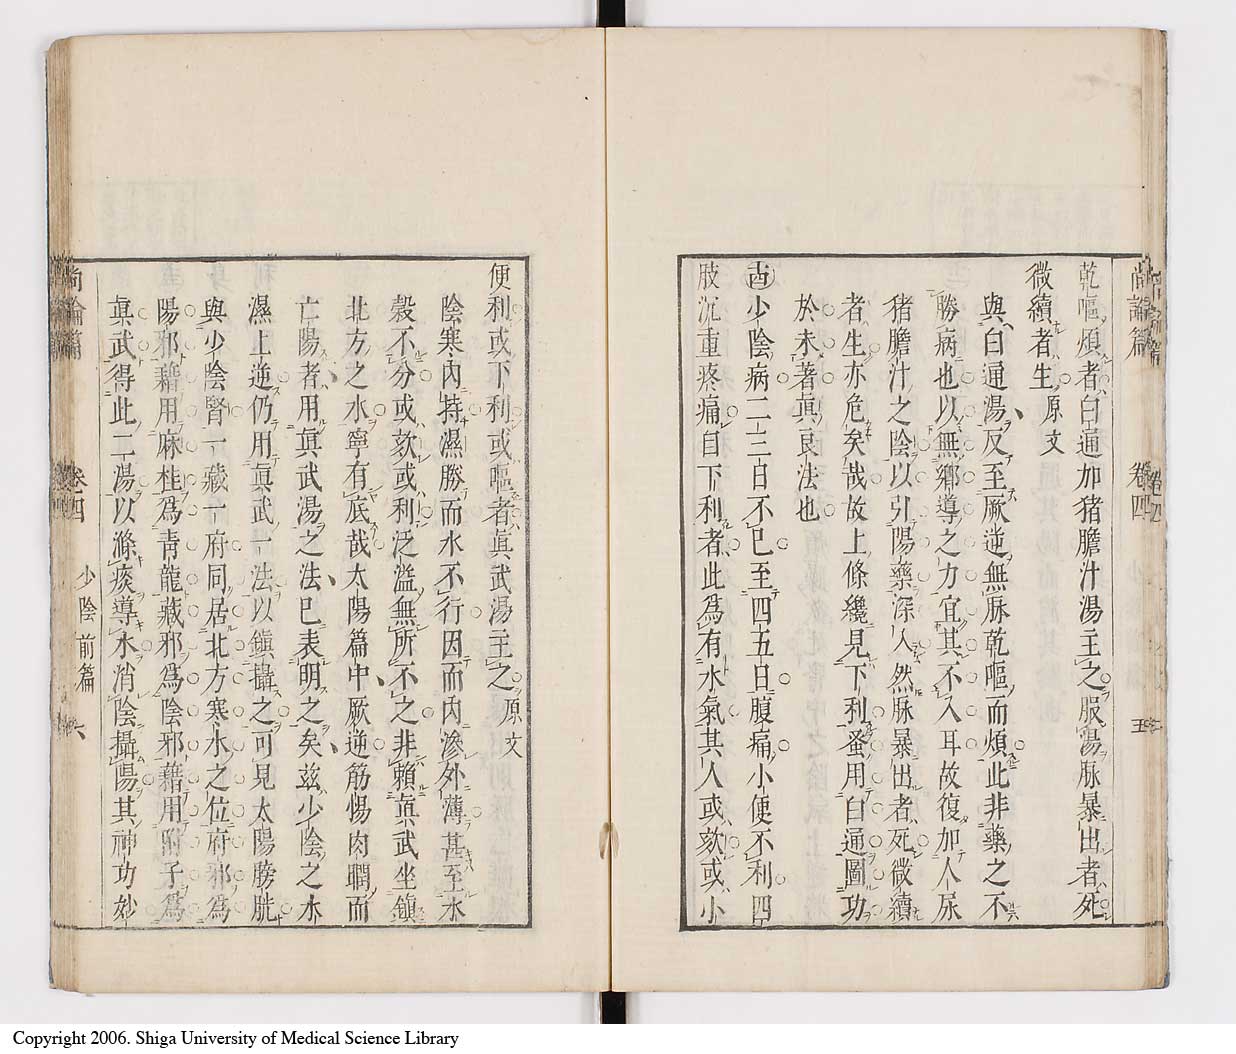 尚論篇 卷四 五
乾嘔煩者白通加猪膽汁湯主之服湯脉暴出者死
微續者生 原文
與白通湯反至厥逆無脉乾嘔而煩此非藥之不
勝病也以無鄉導之力宜其不入耳故復加人尿
猪膽汁之陰以引陽藥深入然脉暴出者死微續
者生亦危矣哉故上條纔見下利蚤用白通圖功
於未著眞良法也
少陰病二三日不已至四五日腹痛小便不利四
肢沉重疼痛自下利者此爲有水氣其人或欬或小
便利或下利或嘔者眞武湯主之 原文
陰寒內持濕勝而水不行因而內滲外薄甚至水
穀不分或欬或利泛溢無所不之非賴眞武坐鎮
北方之水寧有底哉太陽篇中厥逆筋惕肉瞤而
亡陽者用眞武湯之法已表明之矣茲少陰之水
濕上逆仍用眞武一法以鎮攝之可見太陽膀胱
與少陰腎一藏一府同居北方寒水之位府邪爲
陽邪藉用麻桂爲靑龍藏邪爲陰邪藉用附子爲
眞武得此二湯以滌痰導水消陰攝陽其神功妙
尚論篇 卷四 少陰前篇 六
Copyright 2006. Shiga University of Medical Science Library